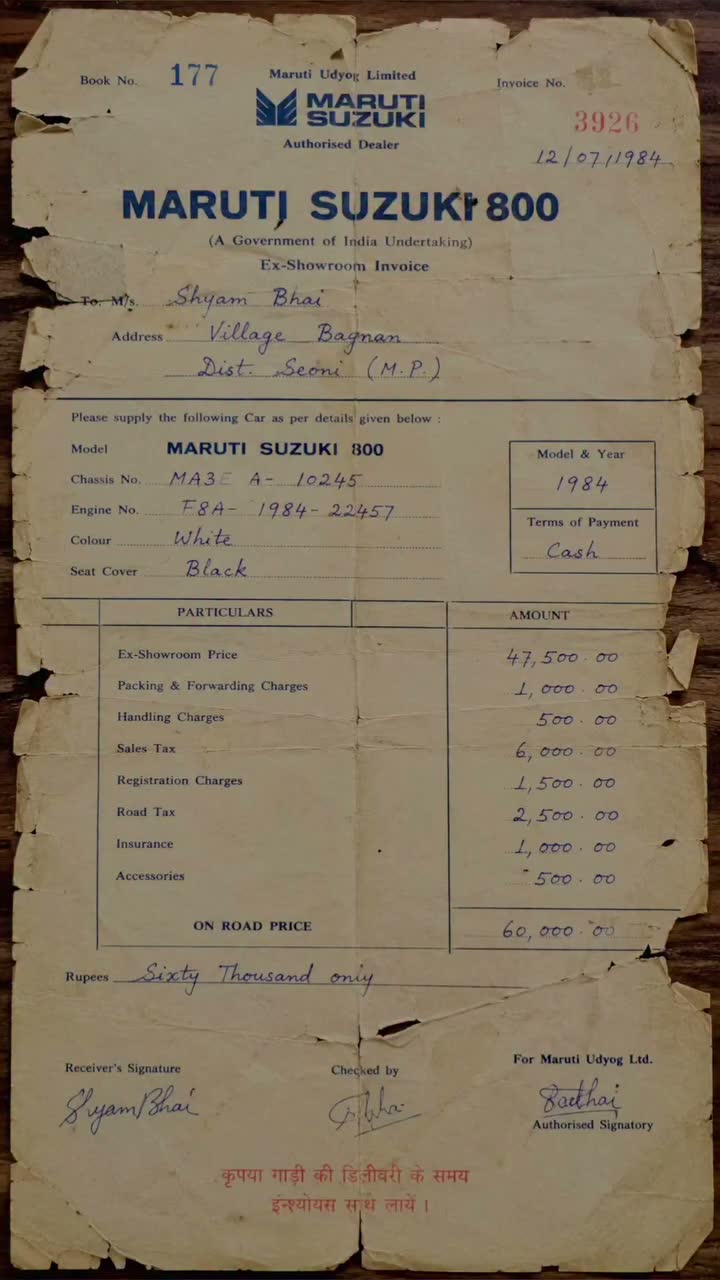 Book No. 177
Maruti Udyog Limited
MARUTI
SUZUKI
Authorised Dealer
Invoice No.
3926
12/07/1984
MARUTI SUZUKI 800
(A Government of India Undertaking)
Ex-Showroom Invoice
To. M/s. Shyam Bhai
Address Village Bagnan
Dist. Seoni (M.P.)
Please supply the following Car as per details given below :
Model MARUTI SUZUKI 800
Chassis No. MA3E A- 10245
Engine No. F8A- 1984- 22457
Colour White
Seat Cover Black
Model & Year
1984
Terms of Payment
Cash
PARTICULARS AMOUNT
Ex-Showroom Price 47,500.00
Packing & Forwarding Charges 1,000.00
Handling Charges 500.00
Sales Tax 6,000.00
Registration Charges 1,500.00
Road Tax 2,500.00
Insurance 1,000.00
Accessories 500.00
ON ROAD PRICE 60,000.00
Rupees Sixty Thousand only
Receiver's Signature
Shyam Bhai
Checked by
For Maruti Udyog Ltd.
Authorised Signatory
कृपया गाड़ी की डिलीवरी के समय
इन्श्योयस साथ लायें ।